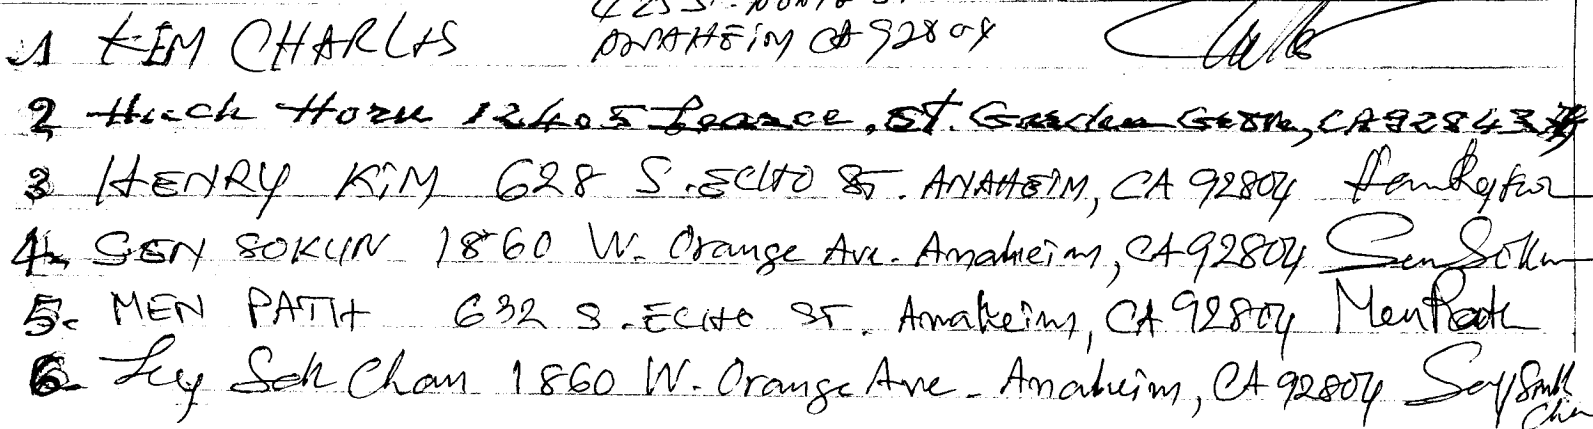 1 KEM CHARLES ANAHEIM CA 92804
2 Huch Horn 12405 St. Garden Grove, CA 92843
3 HENRY KIM 628 S. ECHO ST. ANAHEIM, CA 92804
4. SEN SOKUN 1860 W. Orange Ave. Anaheim, CA 92804 Sen Sokun
5. MEN PATH 632 S. ECHO ST. Anaheim, CA 92804 Men Path
6. Sok Chan 1860 W. Orange Ave. Anaheim, CA 92804